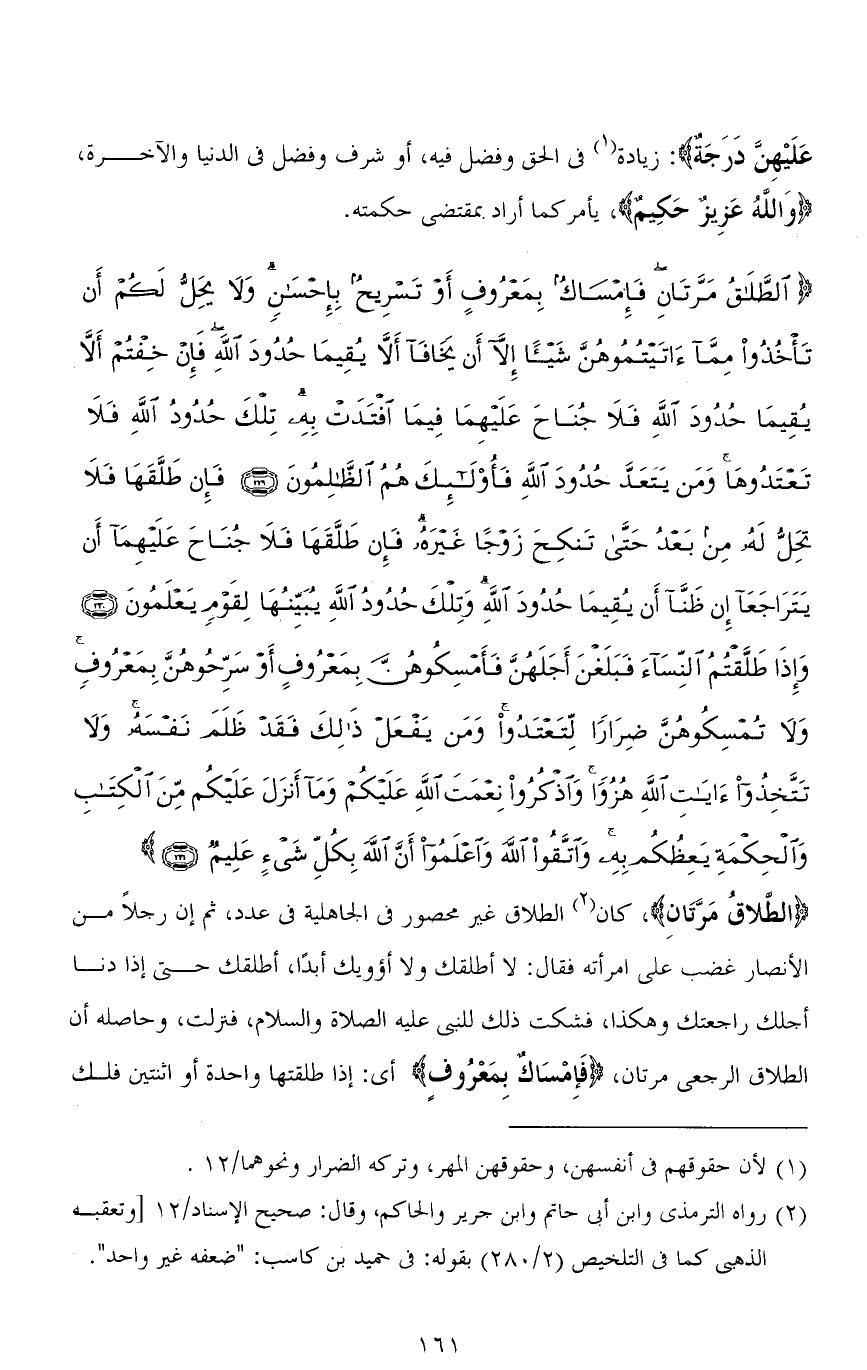 عَلَيْهِنَّ دَرَجَةٌ﴾: زيادة(١) فى الحق وفضل فيه، أو شرف وفضل فى الدنيا والآخـــرة،
﴿وَاللَّهُ عَزِيزٌ حَكِيمٌ﴾، يأمر كما أراد بمقتضى حكمته.
﴿ ٱلطَّلَٰقُ مَرَّتَانِۖ فَإِمْسَاكُۢ بِمَعْرُوفٍ أَوْ تَسْرِيحُۢ بِإِحْسَٰنٍۗ وَلَا يَحِلُّ لَكُمْ أَن
تَأْخُذُوا۟ مِمَّآ ءَاتَيْتُمُوهُنَّ شَيْـًٔا إِلَّآ أَن يَخَافَآ أَلَّا يُقِيمَا حُدُودَ ٱللَّهِۖ فَإِنْ خِفْتُمْ أَلَّا
يُقِيمَا حُدُودَ ٱللَّهِ فَلَا جُنَاحَ عَلَيْهِمَا فِيمَا ٱفْتَدَتْ بِهِۦۗ تِلْكَ حُدُودُ ٱللَّهِ فَلَا
تَعْتَدُوهَاۚ وَمَن يَتَعَدَّ حُدُودَ ٱللَّهِ فَأُو۟لَٰٓئِكَ هُمُ ٱلظَّٰلِمُونَ ﴿٢٢٩﴾ فَإِن طَلَّقَهَا فَلَا
تَحِلُّ لَهُۥ مِنۢ بَعْدُ حَتَّىٰ تَنكِحَ زَوْجًا غَيْرَهُۥۗ فَإِن طَلَّقَهَا فَلَا جُنَاحَ عَلَيْهِمَآ أَن
يَتَرَاجَعَآ إِن ظَنَّآ أَن يُقِيمَا حُدُودَ ٱللَّهِۗ وَتِلْكَ حُدُودُ ٱللَّهِ يُبَيِّنُهَا لِقَوْمٍ يَعْلَمُونَ ﴿٢٣٠﴾
وَإِذَا طَلَّقْتُمُ ٱلنِّسَآءَ فَبَلَغْنَ أَجَلَهُنَّ فَأَمْسِكُوهُنَّ بِمَعْرُوفٍ أَوْ سَرِّحُوهُنَّ بِمَعْرُوفٍۚ
وَلَا تُمْسِكُوهُنَّ ضِرَارًا لِّتَعْتَدُوا۟ۚ وَمَن يَفْعَلْ ذَٰلِكَ فَقَدْ ظَلَمَ نَفْسَهُۥۚ وَلَا
تَتَّخِذُوٓا۟ ءَايَٰتِ ٱللَّهِ هُزُوًاۚ وَٱذْكُرُوا۟ نِعْمَتَ ٱللَّهِ عَلَيْكُمْ وَمَآ أَنزَلَ عَلَيْكُم مِّنَ ٱلْكِتَٰبِ
وَٱلْحِكْمَةِ يَعِظُكُم بِهِۦۚ وَٱتَّقُوا۟ ٱللَّهَ وَٱعْلَمُوٓا۟ أَنَّ ٱللَّهَ بِكُلِّ شَىْءٍ عَلِيمٌ ﴿٢٣١﴾ ﴾
﴿الطَّلاقُ مَرَّتَانِ﴾، كان(٢) الطلاق غير محصور فى الجاهلية فى عدد، ثم إن رجلاً مــن
الأنصار غضب على امرأته فقال: لا أطلقك ولا أؤويك أبدًا، أطلقك حــتى إذا دنــا
أجلك راجعتك وهكذا، فشكت ذلك للنبى عليه الصلاة والسلام، فنزلت، وحاصله أن
الطلاق الرجعى مرتان، ﴿فَإِمْسَاكٌ بِمَعْرُوفٍ﴾ أى: إذا طلقتها واحدة أو اثنتين فلــك
(١) لأن حقوقهم فى أنفسهن، وحقوقهن المهر، وتركه الضرار ونحوهما/١٢ .
(٢) رواه الترمذى وابن أبى حاتم وابن جرير والحاكم، وقال: صحيح الإسناد/١٢ [وتعقبــه
الذهبى كما فى التلخيص (٢٨٠/٢) بقوله: فى حميد بن كاسب: "ضعفه غير واحد".
١٦١